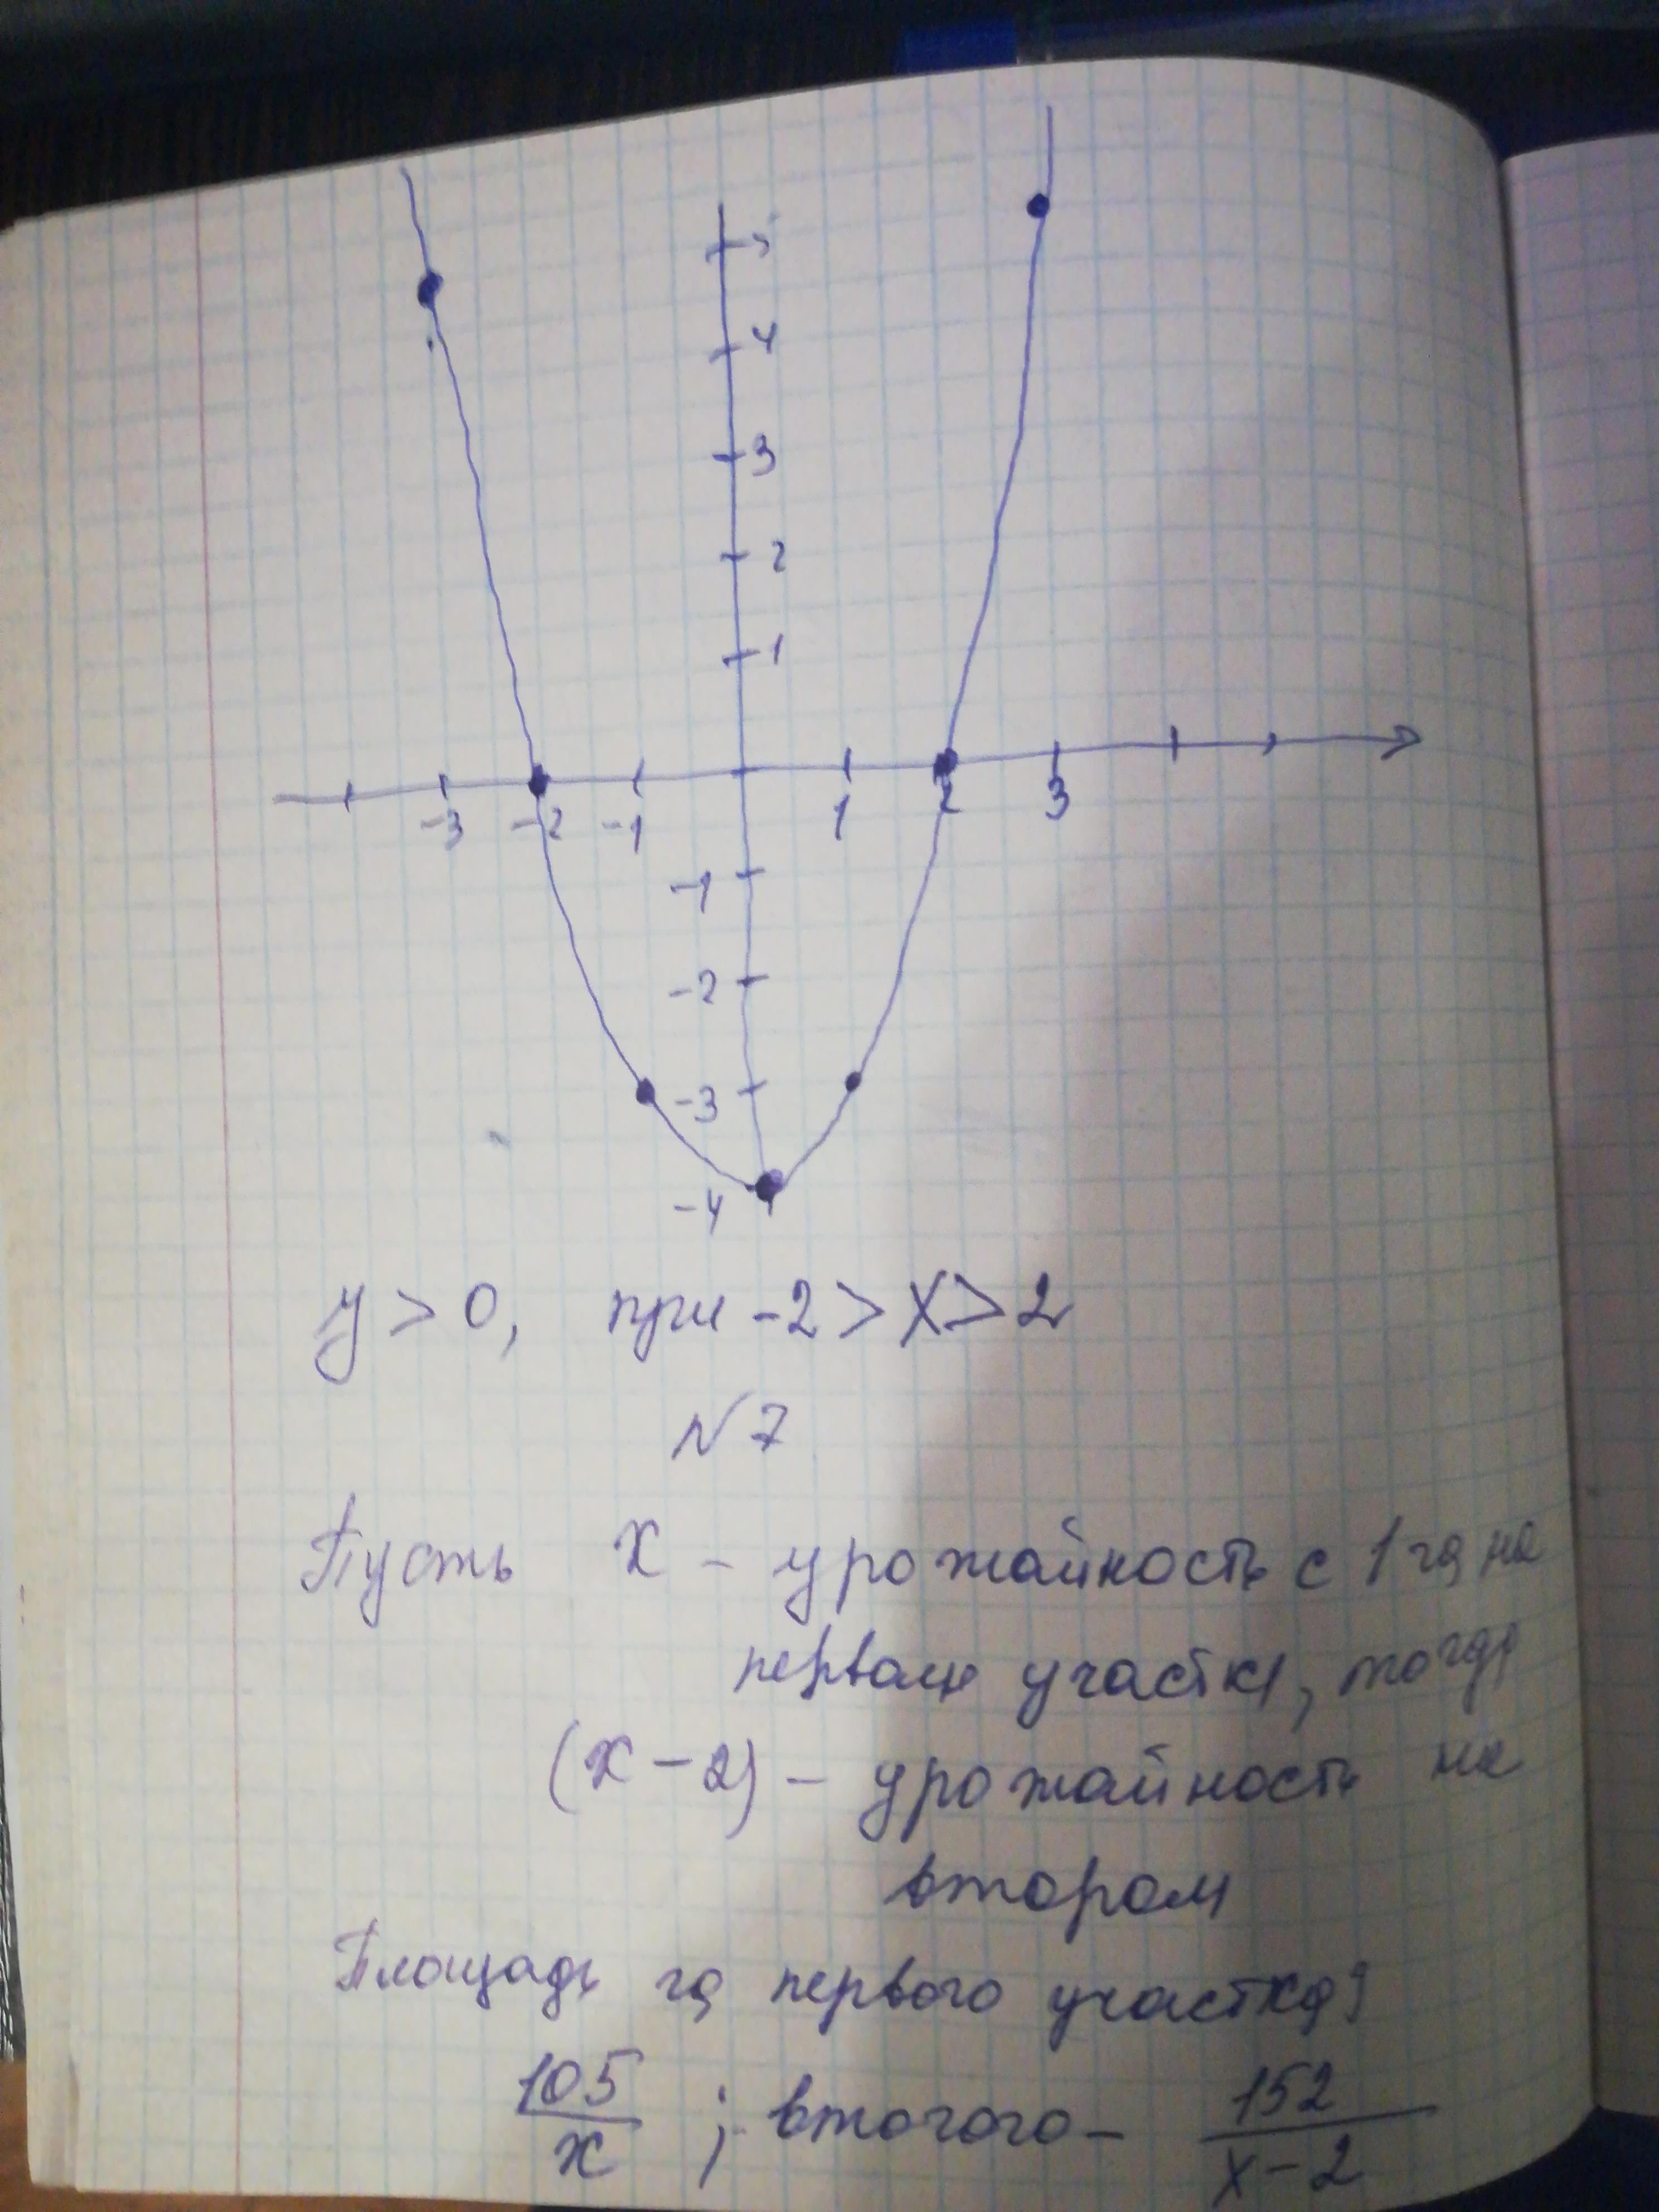 5
4
3
2
1
-3 -2 -1 1 2 3
-1
-2
-3
-4
y > 0, при -2 > x > 2
N 7
Пусть x - урожайность с 1 га на
первом участке, тогда
(x - 2) - урожайность на
втором
Площадь га первого участка
105/x ; второго - 152/x-2